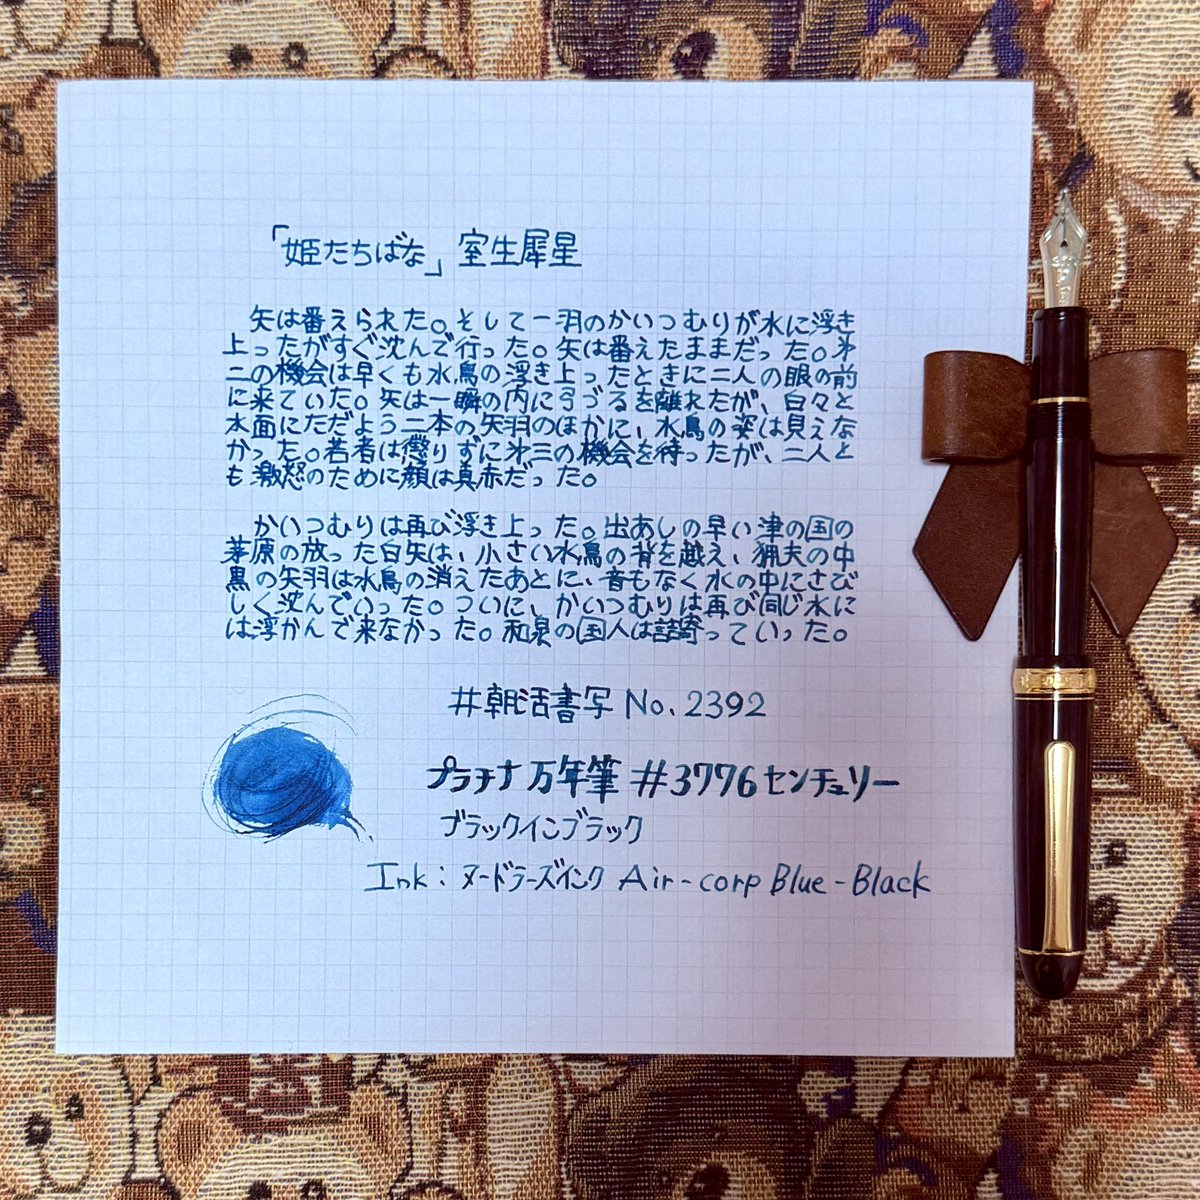 「姫たちばな」 室生犀星
矢は番えられた。そして一羽のかいつむりが水に浮き
上ったがすぐ沈んで行った。矢は番えたままだった。才
二の機会は早くも水鳥の浮き上ったときに二人の眼の前
に来ていた。矢は一瞬の内に弓づるを離れたが、白々と
水面にただよう二本の矢羽のほかに、水鳥の姿は見えな
かった。若者は懲りずに才三の機会を待ったが、二人と
も激怒のために顔は真赤だった。
かいつむりは再び浮き上った。出あしの早い津の国の
茅原の放った白矢は、小さい水鳥の背を越え、猟夫の中
黒の矢羽は水鳥の消えたあとに、音もなく水の中にさび
しく沈んでいった。ついに、かいつむりは再び同じ水に
は浮かんで来なかった。和泉の国人は詰寄っていった。
#朝活書写 No.2392
プラチナ万年筆 #3776センチュリー
ブラックインブラック
Ink: ヌードラーズインク Air-corp Blue-Black